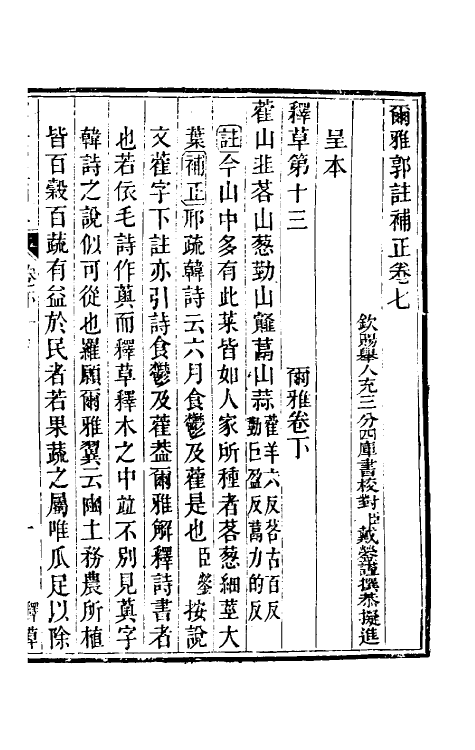 爾雅郭註補正卷七
欽賜舉人充三分四庫書校對臣戴鎣謹撰恭擬進
呈本
釋草第十三 爾雅卷下
藿山韭茖山葱勤山䪥蒚山蒜藿羊六反茖古百反勤巨盈反蒚力的反
註今山中多有此菜皆如人家所種者茖葱細莖大
葉補正邢疏韓詩云六月食鬱及藿是也臣鎣按說
文藿字下註亦引詩食鬱及藿葢爾雅解釋詩書者
也若依毛詩作薁而釋草釋木之中竝不別見薁字
韓詩之說似可從也羅願爾雅翼云豳土務農所植
皆百穀百蔬有益於民者若果蔬之屬唯瓜足以除
一 釋草